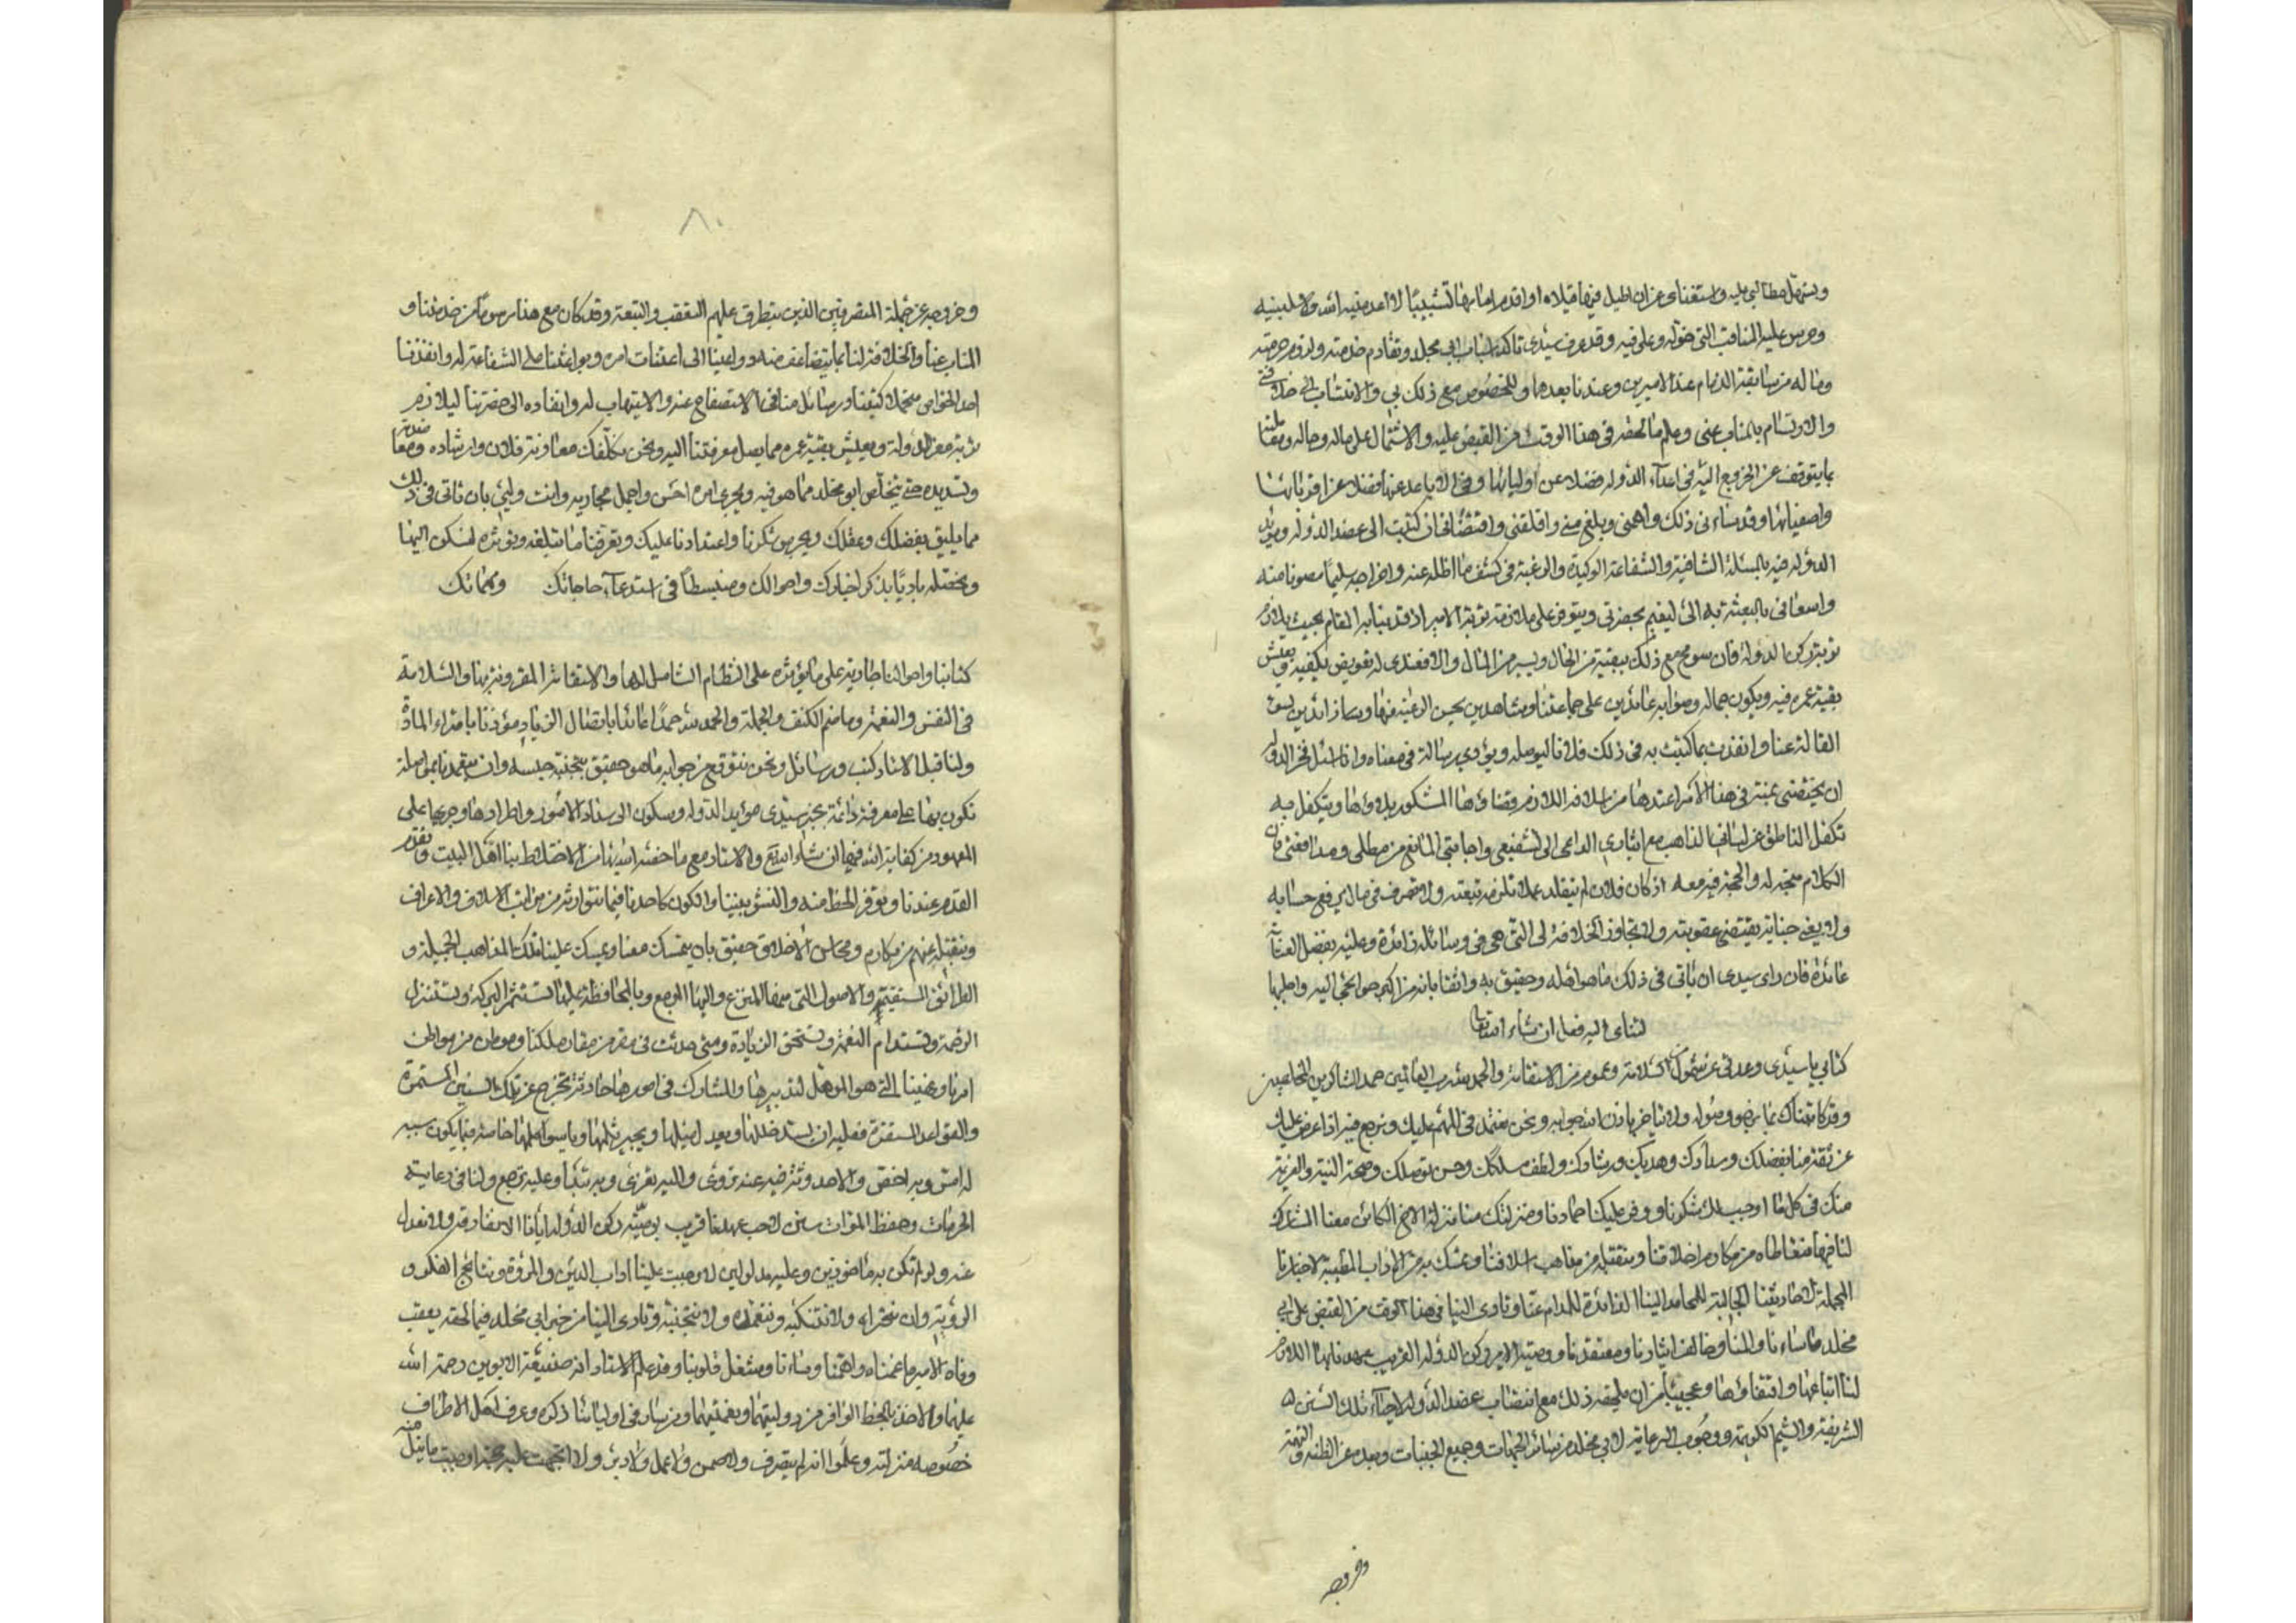 ويسهل مطالبي عليه واستغنائي عن ان اطيل فيها قيلا او اقدم امامها تشبيبا
وحرس عليه المناقب التي خوله وعلى فيه وقد عرف سيدي تاكد اسباب ابي مخلد وتقادم خدمته ولزوم حرمته
وماله من سابقة الذمام عند الاميرين وعندنا بعدهما وللخصوص مع ذلك بي والانتساب الى خلافتي
والارتسام بالمناب عني وعلم ما لحقه في هذا الوقت من القبض عليه والاشتمال على ماله وحاله
بما يتوقف عن الخروج اليه في اعداء الدوله فضلا عن اوليائها وفي الاباعد عنها فضلا عن اقربائها
واصفيائها وقد ساءني ذلك واهمني وبلغ مني واقلقني واقتضاني ان كتبت الى عضد الدوله ومويد
الدوله فيه بالمسئلة الشافية والشفاعة الوكيدة والرغبة في كشف ما اظله عنه واخراجه سليما مصونا منه
واسعافي بالبعثة به الي ليقيم بحضرتي ويتوفر على ملازمة تربة الامير اذ قد نبا به المقام بحيث يلازم
تربة ركن الدولة فان سومح مع ذلك ببقية من الحال ويسير من المال والا فعندي له تعويض يكفيه ويعيش
بقية عمره فيه ويكون جماله وصوابه عائدين على جماعتنا وشاهدين بحسن الرعية
القالة عنا وانفذت بما كتبت به في ذلك فلانا ليوصله ويؤدي رسالة في معناه وانا اسئل فخر الدوله
ان يخصني بمنة في هذا الامر اعتدها من اسلافه اللازم قضاؤها المشكور بلاؤها ويتكفل به
تكفل الناطق عن لساني الذاهب مع ايثاري الداعي الى تشفيعي واجابتي المانع من مطلي ومدافعتي فان
الكلام متجه له والحجة فيه معه اذ كان فلان لم يتقلد عملا تلزمه تبعته ولا تصرف في مال يرفع حسابه
ولا جنى جناية يقتضي عقوبته ولا تجاوز الخلافة لي التي هي في وسائله زائدة وعليه بفضل العناية
عائدة فان راى سيدي ان ياتي في ذلك ما هو اهله وحقيق به واثقا بانه من اكبر حوائجي اليه واجلبها
لثنائي اليه فعل ان شاء الله تعالى
كتابي يا سيدي وعدتي عن شمول السلامة وعموم من الاستقامة والحمد لله رب العالمين حمد الشاكرين المخلصين
وقد كاتبناك بما نرجو وصوله ولا يتاخر باذن الله جوابه ونحن نعتمد في المهم عليك ونرجع فيه اذا عرض اليك
عن ثقة منا بفضلك وسدادك وهديك ورشادك ولطف مسلكك وحسن توصلك وصحة النية والعزيمة
منك في كل ما اوجب لك شكرنا ووفر عليك احمادنا ومنزلتك منا منزلة الاخ الكائن معنا المشارك
لنا فيما نتعاطاه من مكارم اخلاقنا ونتقبله من مذاهب اسلافنا ونمسك به من الاداب المطيبة لاخبارنا
المجملة لاحاديثنا الجالبة للمحامد الينا الذائدة للمذام عنا وتادى الينا في هذا الوقت من القبض على ابي
مخلد ما ساءنا والمنا وخالف ايثارنا ومعتقدنا ووصية الامير ركن الدوله القريب عهدنا بها اللازم
لنا اتباعها واقتفاؤها وعجبنا من ان يلحقه ذلك مع انتصاب عضد الدوله لاحياء تلك السنن
الشريفة والشيم الكريمة ووجوب الرعاية لابي مخلد من سائر الجهات وجميع الجنبات وبعده عن الظنة والتهمة
وخروجه
٨٠
وخروجه عن جملة المتصرفين الذين يتطرق عليهم التعقب والتبعة وقد كان مع هذا برسم من خدمتنا و
المناب عنا والخلافة لنا بما يتضاعف معه دواعينا الى اعنات امره وبواعثنا على الشفاعة له وانفذنا
احد الخواص متحملا كتبنا ورسائل منا في الاستصفاح عنه والاستيهاب له وانفاده الى حضرتنا ليلازم
تربة معز الدولة ويعيش بقية عمره مما يصل معرفتنا اليه ونحن نكلفك معاونة فلان وارشاده
وتسديده حتى يتخلص ابو مخلد مما هو فيه ويجري امره احسن واجمل مجاريه وانت ولي بان تاتي في ذلك
ما يليق بفضلك وعقلك ويحرس شكرنا واعتدادنا عليك وتعرفنا ما تبلغه وتوثره لنسكن اليها
ونحتفله باديا بذكر اخبارك واحوالك ومنبسطا في استدعاء حاجاتك ومهماتك
كتابنا واحوالنا جارية على ما نؤثره على النظام الشامل لها والاستقامة المقرونة بها والسلامة
في النفس والنعمة وما ضم الكنف والجملة والحمد لله حمدا عائدا باتصال الزيادة مؤذنا بامتراء المادة
ولنا قبل الاستاد كتب ورسائل ونحن نتوقع من جوابه ما هو حقيق بتجنب حبسه وان يتعمدنا بمواصلة
نكون بها على معرفة دائمة بخبر سيدي مويد الدوله وسكون الى سداد الامور واطرادها وجريها على
المعهود من كفاية الله فيها ان شاء الله تعالى والاستاد مع ما خصه الله به من الاختلاط بنا اهل البيت وتقدم
القدم عندنا وتوفر الحظ منه والنشو بيننا والكون كاحدنا فيما نتوارثه من مراتب الاسلاف والاعراف
ونتقبله عنهم من مكارم ومحاسن الاخلاق حقيق بان يتمسك معنا ويمسك علينا تلك المذاهب الجميلة و
الطرائق المستقيمة والاصول التي منها المنزع واليها المرجع وبالمحافظة عليها تستثمر البركة وتستنزل
الرحمة وتستدام النعمة وتستحق الزيادة ومتى حدثت في مقر من مقار ملكنا وموطن من مواطن
امرنا وعنينا التي هو الموهل لتدبيرها والمشارك في امورها حادثة تخرج عن تلك السنن المستمرة
والقواعد المستقرة فعليه ان يسد خللها ويعدل ميلها ويجبر ثلمها وياسو المها خاصة فيما يكون سببه
له امس وبه اخص والاحدوثة فيه عنه تروى واليه تعزى وبه تبدا وعليه ترجع ولنا في رعاية
الحرمات وحفظ الموات سنن لاحب عهدنا قريب بوصية ركن الدوله ايانا الا نفارقه ولا نعدل
عنه ولو لم تكن به ماخوذين وعليه مدلولين لاوجبت علينا اداب الدين والمروة ونتائج الفكر و
الروية وان نؤثره ولا نتنكبه ونتعمده ولا نتجنبه وتادى الينا من خبر ابي مخلد فيما لحقه بعقب
وفاة الامير ما غمنا واهمنا وساءنا وشغل قلوبنا وقد علم الاستاد انه صنيعة الابوين رحمة الله
عليهما والاخذ بالحظ الوافر من دولتيهما ونعمتيهما ومن سار في اوليائنا ذكره وعرف اهل الاطراف
خصوصه منزلته وعلموا انه لم يتصرف ولا ضمن ولا عمل ولا دبر ولا اتجهت عليه حجة اوجبت ما نيل منه